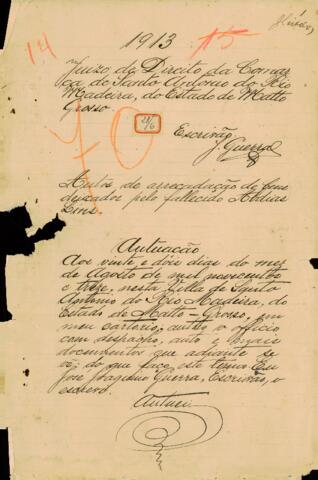 14
1913
15
Juizo de Direito da Comar
ca de Santo Antonio do Rio
Madeira, do Estado de Matto
Grosso
70
28/6
Escrivão
J. Guerra
Autos de arrecadação de bens
deixados pelo fallecido Abdias
Autuação
Aos vinte e dois dias do mez
de Agosto de mil novecentos
e treze, nesta Villa de Santo
Antonio do Rio Madeira, do
Estado de Matto-Grosso, em
meu cartorio, autuo o officio
com despacho, auto e mais
documentos que adiante se
vê; do que faço este termo. Eu
José Joaquim Guerra, Escrivão, o
escrevi.
Autuei